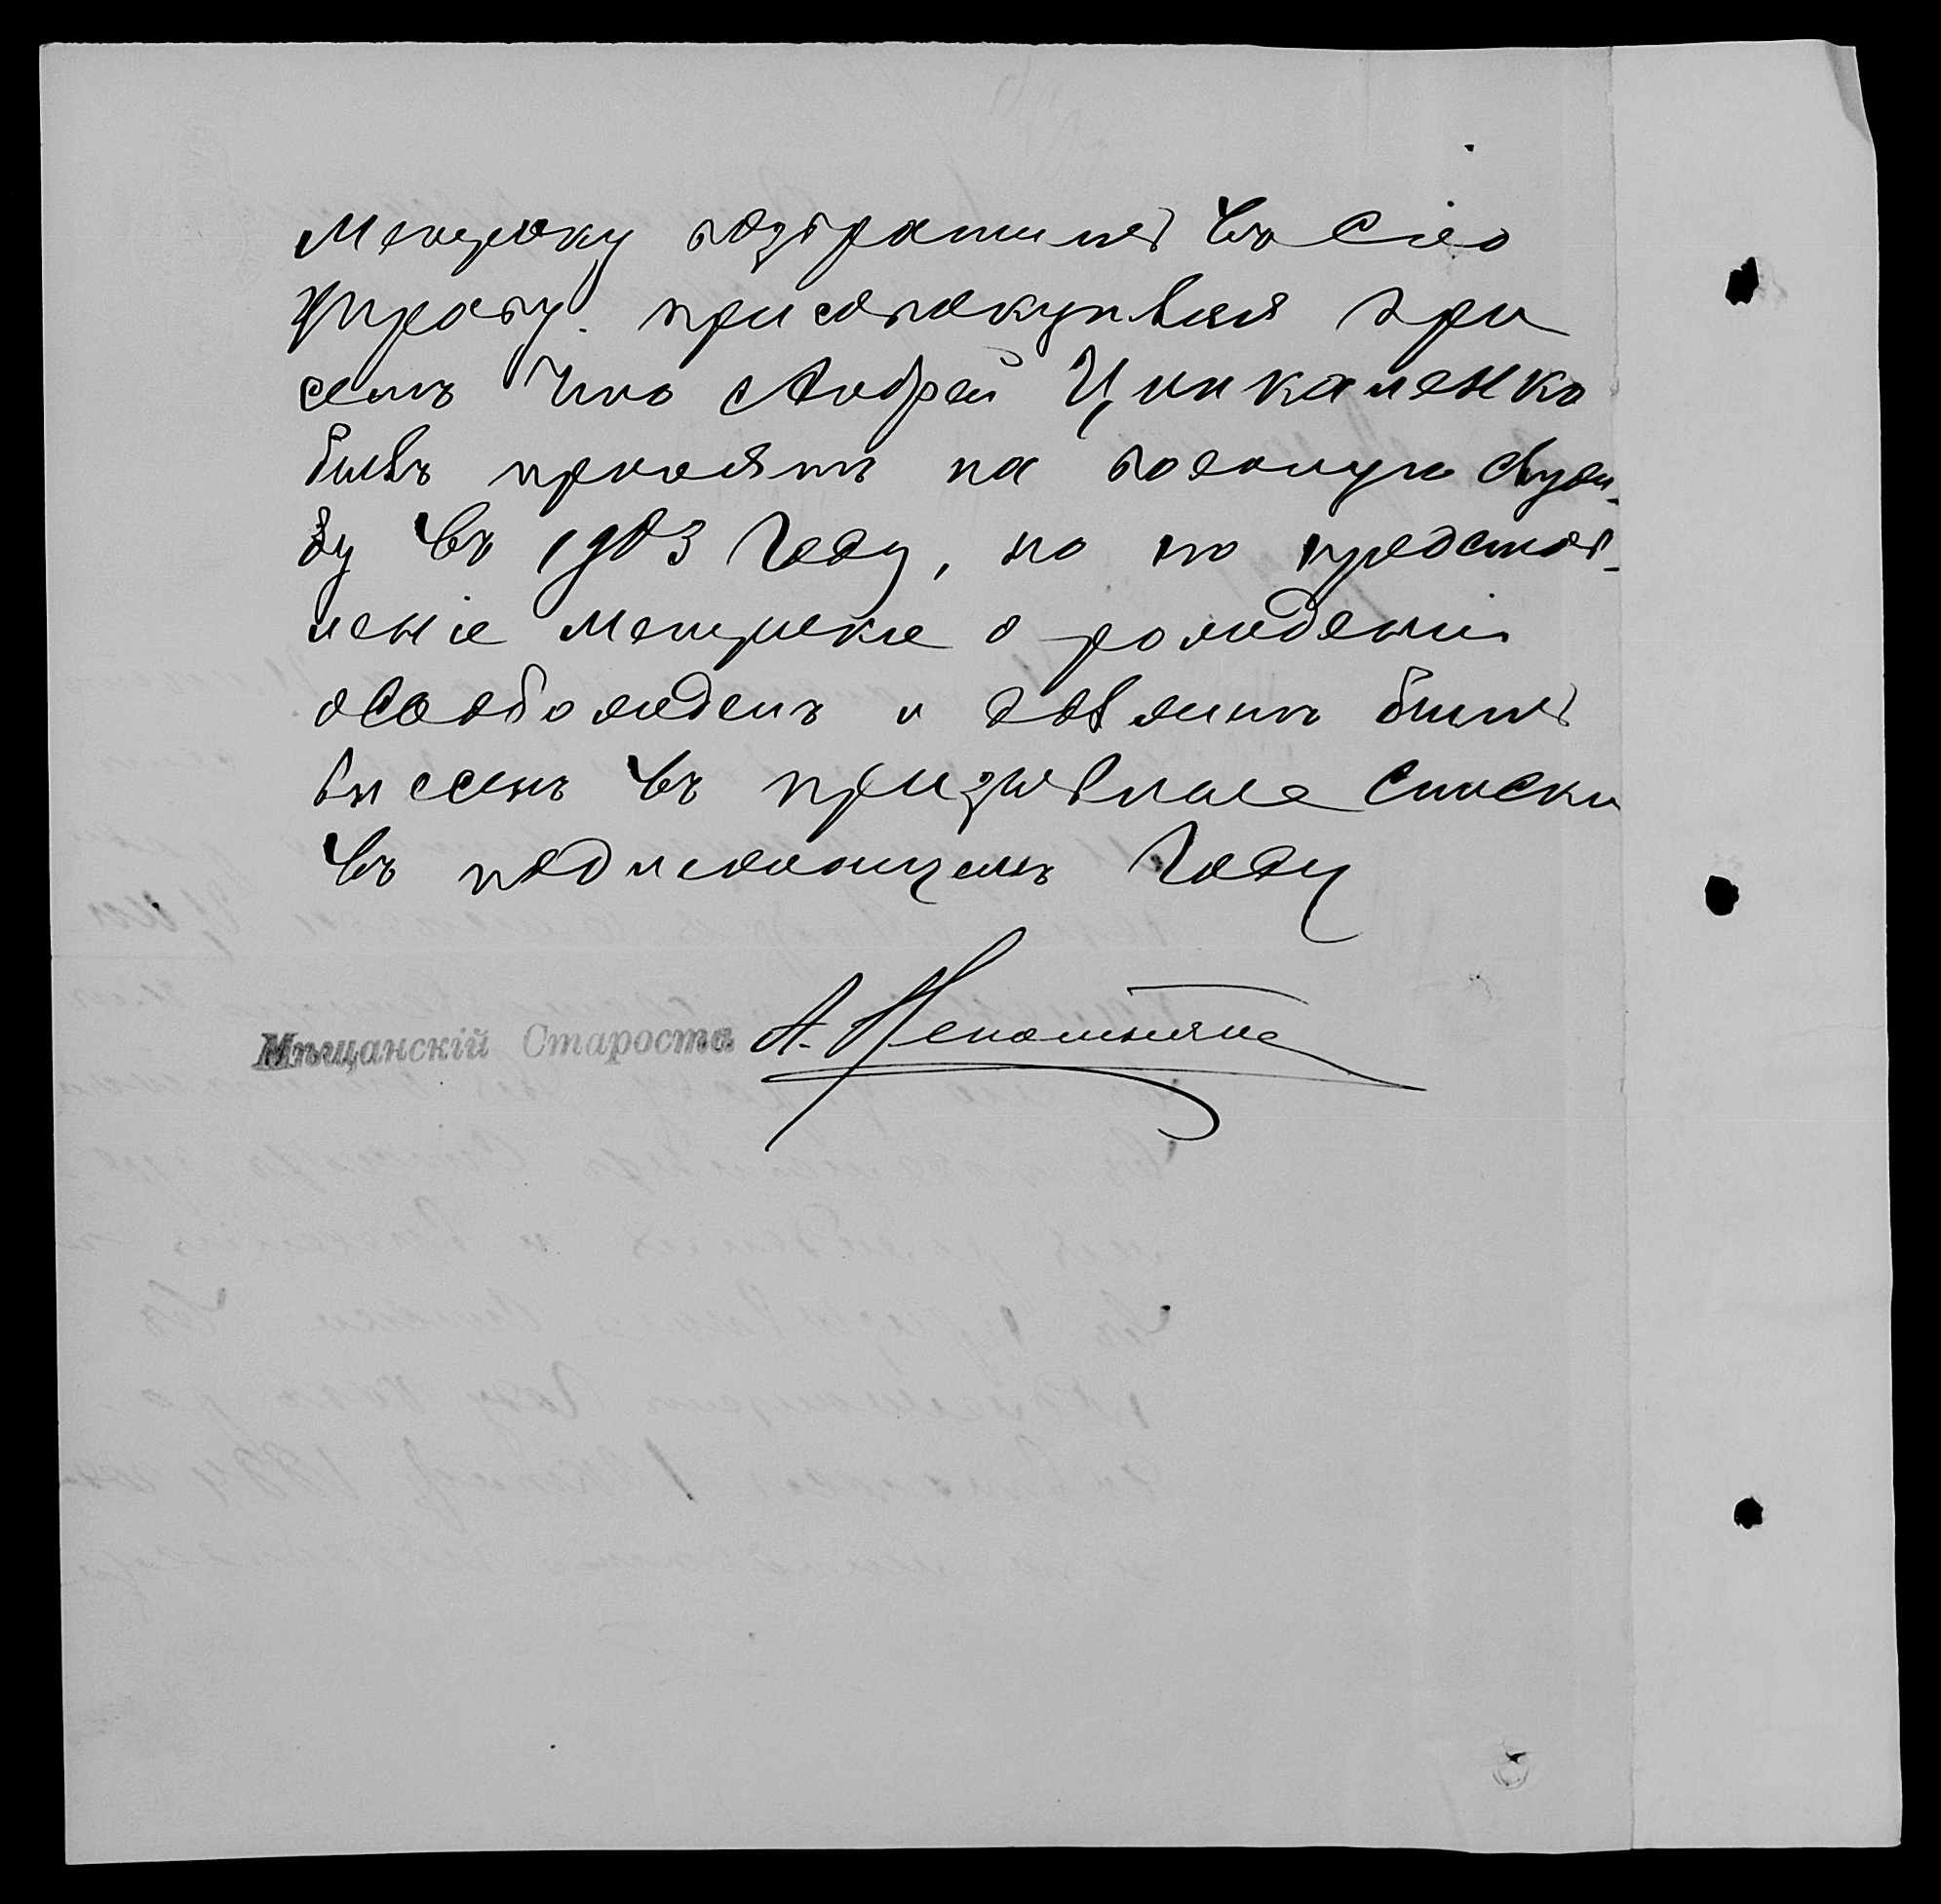 Метрику возвратить въ сію
Управу. присовокупляя при
семъ что Андрей Цинкаленко
былъ принятъ на военную служ-
бу въ 1903 году, но по представ-
леніе метрики о рожденіи
освобожденъ и долженъ быть
внесенъ въ призывные списки
въ подлежащемъ году
Мѣщанскій Староста А.